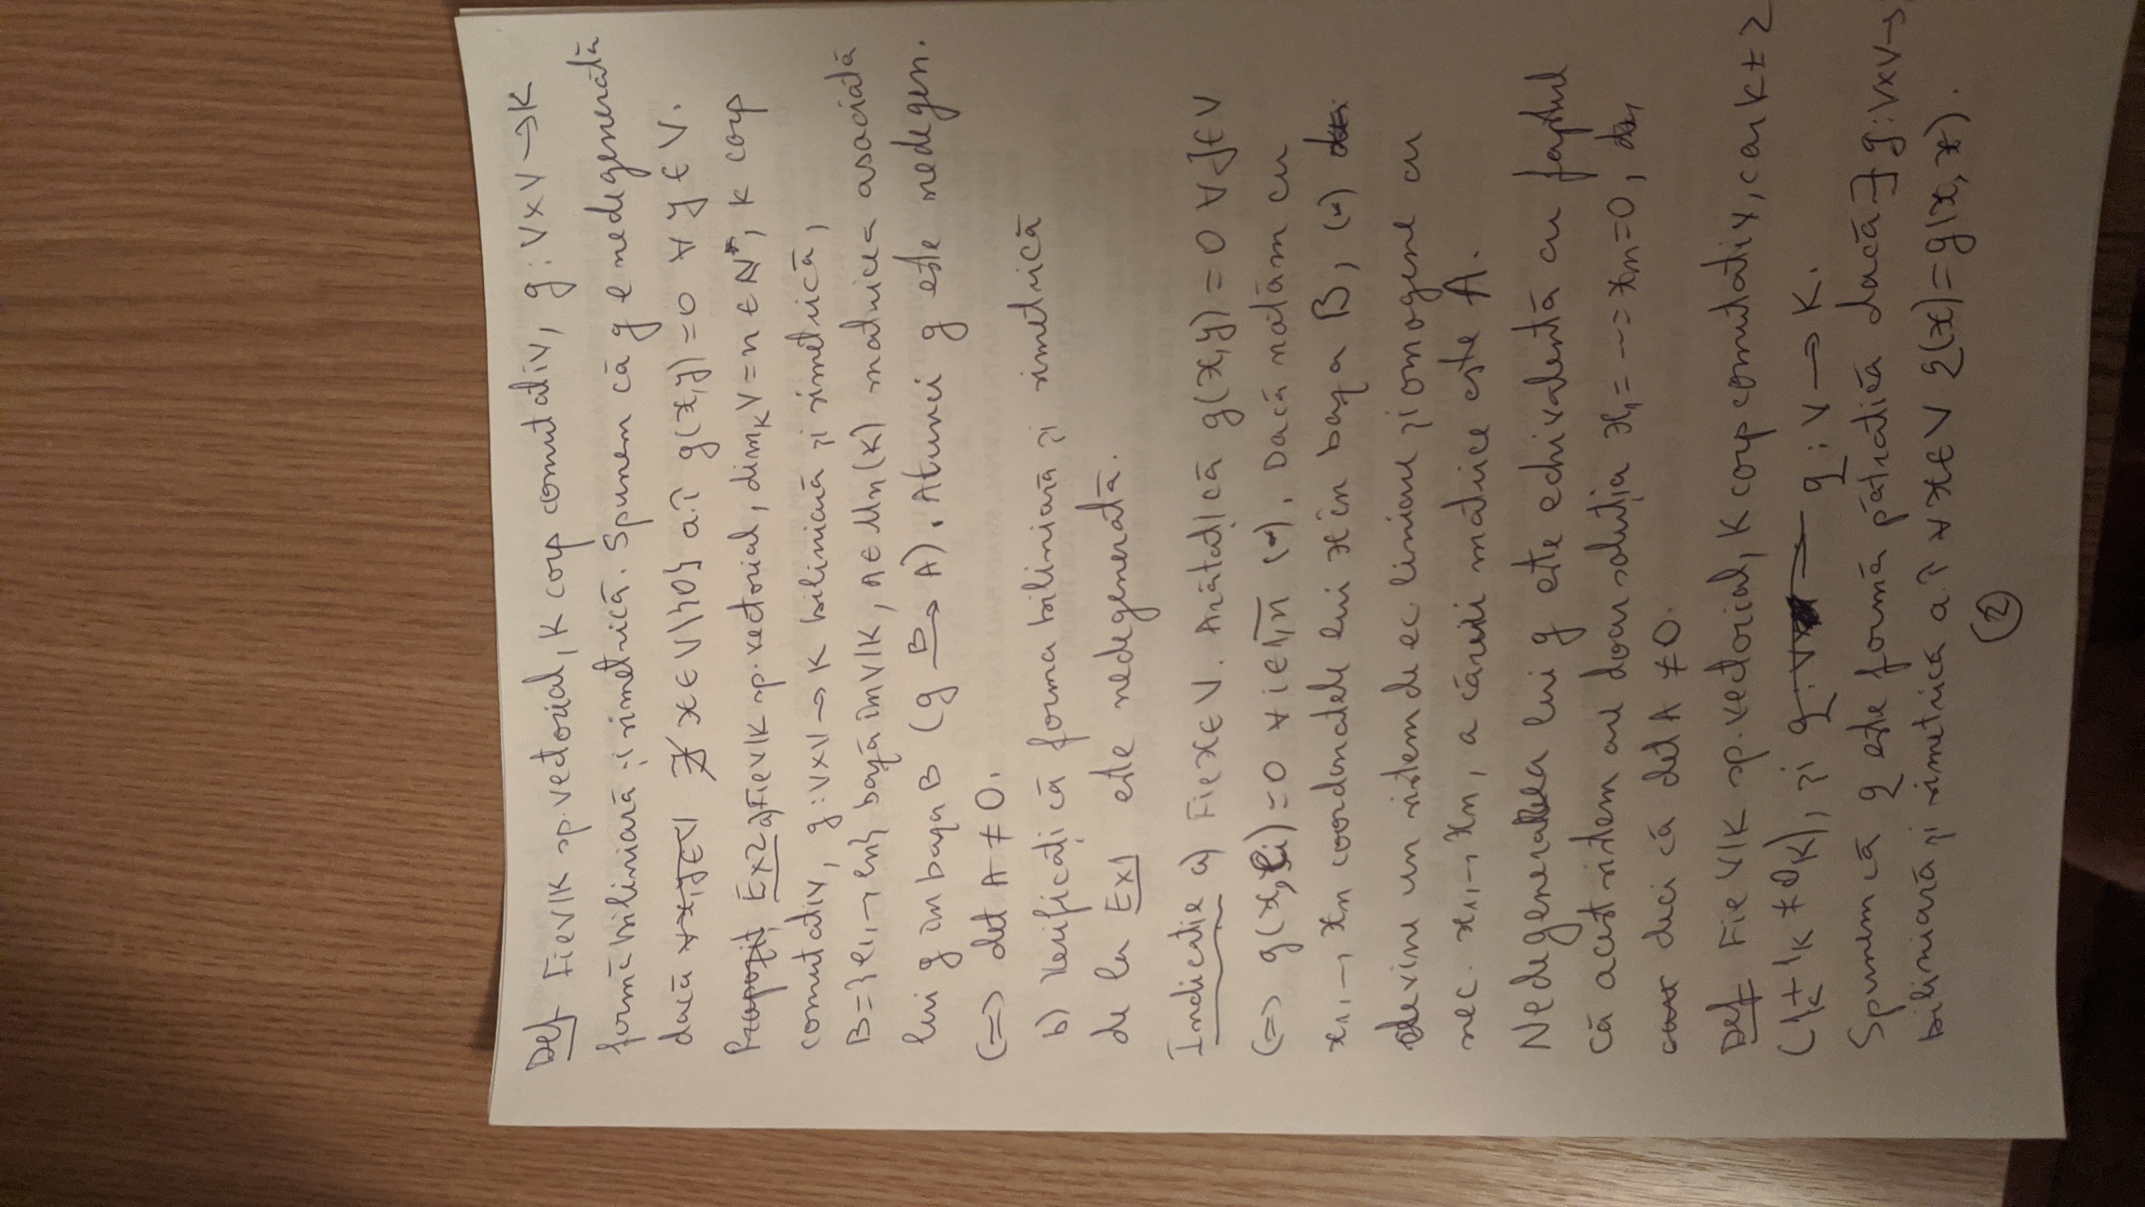 Def Fie V/K sp. vectorial, K corp comutativ, g : V×V → K
formă biliniară și simetrică. Spunem că g e nedegenerată
dacă ∀x,y∈V ∄ x ∈ V\{0} a.î g(x,y)=0 ∀ y ∈ V.
Propoziț Ex2 a) Fie V/K sp. vectorial, dim_K V = n ∈ N*, K corp
comutativ, g : V×V → K biliniară și simetrică,
B={e1,-,en} bază în V/K, A ∈ Mn(K) matricea asociată
lui g în baza B (g →^B A). Atunci g este nedegen.
(=> det A ≠ 0.
b) Verificați că forma biliniară și simetrică
de la Ex1 este nedegenerată.
Indicație a) Fie x ∈ V. Arătați că g(x,y) = 0 ∀ y ∈ V
(=> g(x,ei) = 0 ∀ i ∈ 1,n (*). Dacă notăm cu
x1,-, xn coordonatele lui x în baza B, (*)
devine un sistem de ec. liniare și omogene cu
nec. x1,-, xn, a cărui matrice este A.
Nedegenerarea lui g este echivalentă cu faptul
că acest sistem are doar soluția x1 = -- = xn = 0,
care deci că det A ≠ 0.
Def Fie V/K sp. vectorial, K corp comutativ, car K ≠ 2
(1_K + 1_K ≠ 0_K), și q : V → K.
Spunem că q este formă pătratică dacă ∃ g : V×V →
biliniară și simetrică a.î ∀ x ∈ V q(x) = g(x, x).
2